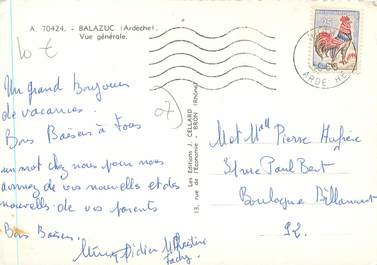 A. 70424. - BALAZUC (Ardèche)
Vue générale.
10 €
07)
Un grand bonjour
de vacances.
Bons Baisers à Tous
un mot chez nous pour nous
donner de vos nouvelles et des
nouvelles de vos parents
Bons Baisers.
Didier Christine
Les Editions J. CELLARD
13, rue de l'Economie - BRON (Rhône)
ARDECHE
Mr et Mme Pierre
31 rue Paul Bert
Boulogne Billancourt
92.